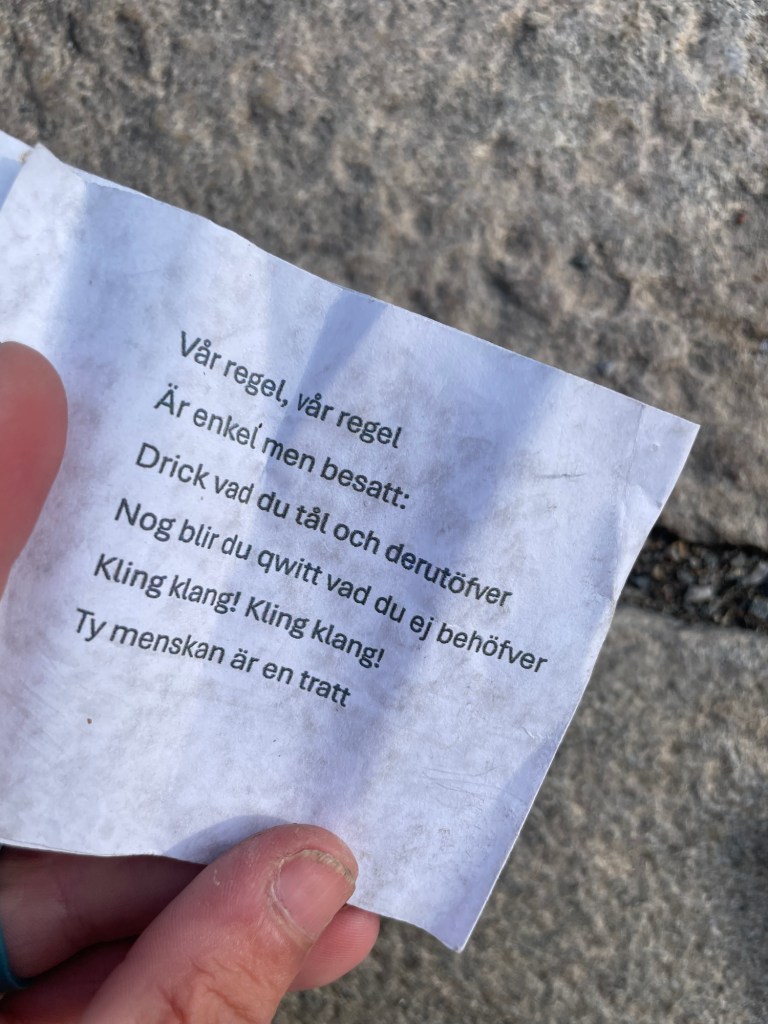 Vår regel, vår regel
Är enkel men besatt:
Drick vad du tål och derutöfver
Nog blir du qwitt vad du ej behöfver
Kling klang! Kling klang!
Ty menskan är en tratt